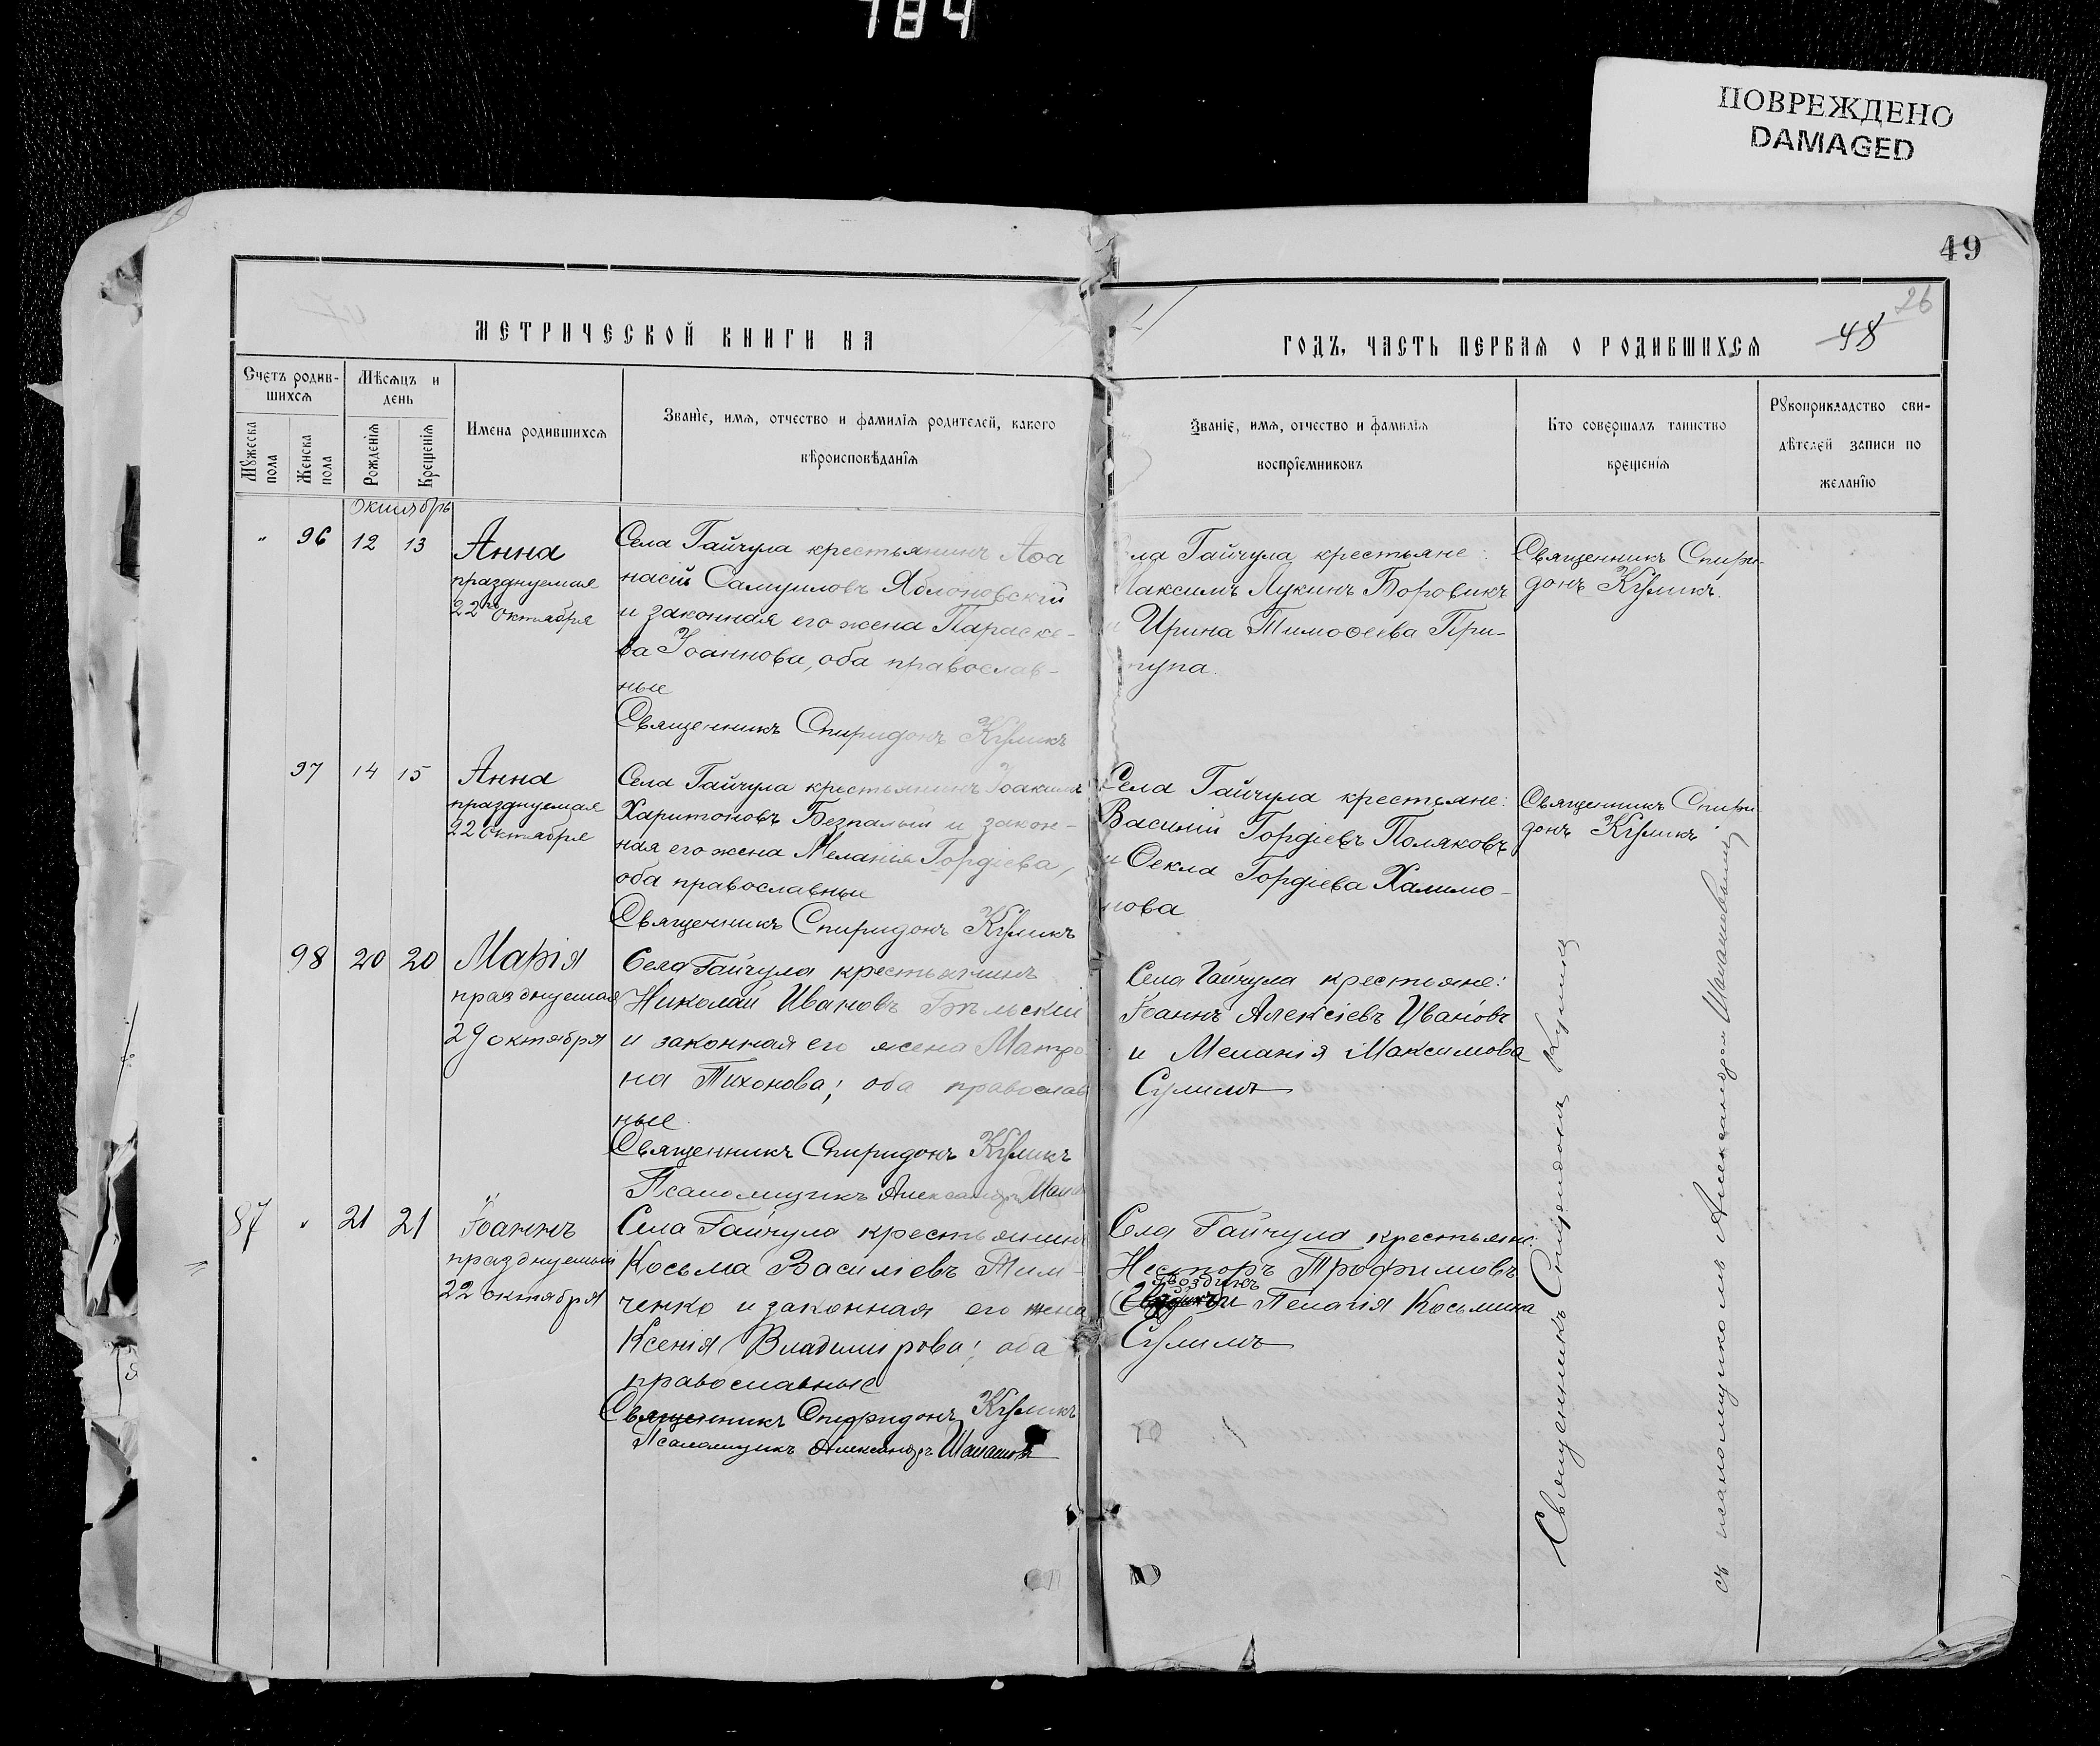 184
ПОВРЕЖДЕНО
DAMAGED
49
26
48
МЕТРИЧЕСКОЙ КНИГИ НА
ГОДЪ, ЧАСТЬ ПЕРВАЯ О РОДИВШИХСЯ
Счетъ родив-
шихся
Мѣсяцъ и
день
Мужеска
пола
Женска
пола
Рожденія
Крещенія
Имена родившихся
Званіе, имя, отчество и фамилія родителей, какого
вѣроисповѣданія
Званіе, имя, отчество и фамилія
воспріемниковъ
Кто совершалъ таинство
крещенія
Рукоприкладство сви-
дѣтелей записи по
желанію
Октябрь
" 96 12 13
Анна
празднуемая
22го октября
Села Гайчула крестьянинъ Аѳа
насій Самуиловъ Яблоновскій
и законная его жена Параске-
ва Іоаннова, оба православ-
ные
Священникъ Спиридонъ Куликъ
ла Гайчула крестьяне:
Максимъ Лукинъ Боровикъ
и Ирина Тимоѳеева При-
тупа.
Священникъ Спири-
донъ Куликъ.
97 14 15
Анна
празднуемая
22 октября
Села Гайчула крестьянинъ Іоакимъ
Харитоновъ Безпалый и закон-
ная его жена Меланія Гордіева,
оба православные
Священникъ Спиридонъ Куликъ
Села Гайчула крестьяне:
Василій Гордіевъ Поляковъ
и Ѳекла Гордіева Халимо-
нова
Священникъ Спири
донъ Куликъ
98 20 20
Марія
празднуемая
29 октября
Села Гайчула крестьянинъ
Николай Ивановъ Бѣльскій
и законная его жена Матро
на Тихонова; оба православ
ные.
Священникъ Спиридонъ Куликъ
Псаломщикъ Александръ
Села Гайчула крестьяне:
Іоаннъ Алексіевъ Ивановъ
и Меланія Максимова
Сулимъ
87 " 21 21
Іоаннъ
празднуемый
22 октября
Села Гайчула крестьянинъ
Косьма Василіевъ Тим-
ченко и законная его жена
Ксенія Владимірова; оба
православные
Священникъ Спиридонъ Куликъ
Псаломщикъ Александръ
Села Гайчула крестьяне:
Несторъ Трофимовъ
Гвоздикъ
и Пелагія Косьмина
Сулимъ
Священникъ Спиридонъ Куликъ
съ псаломщикомъ Александромъ